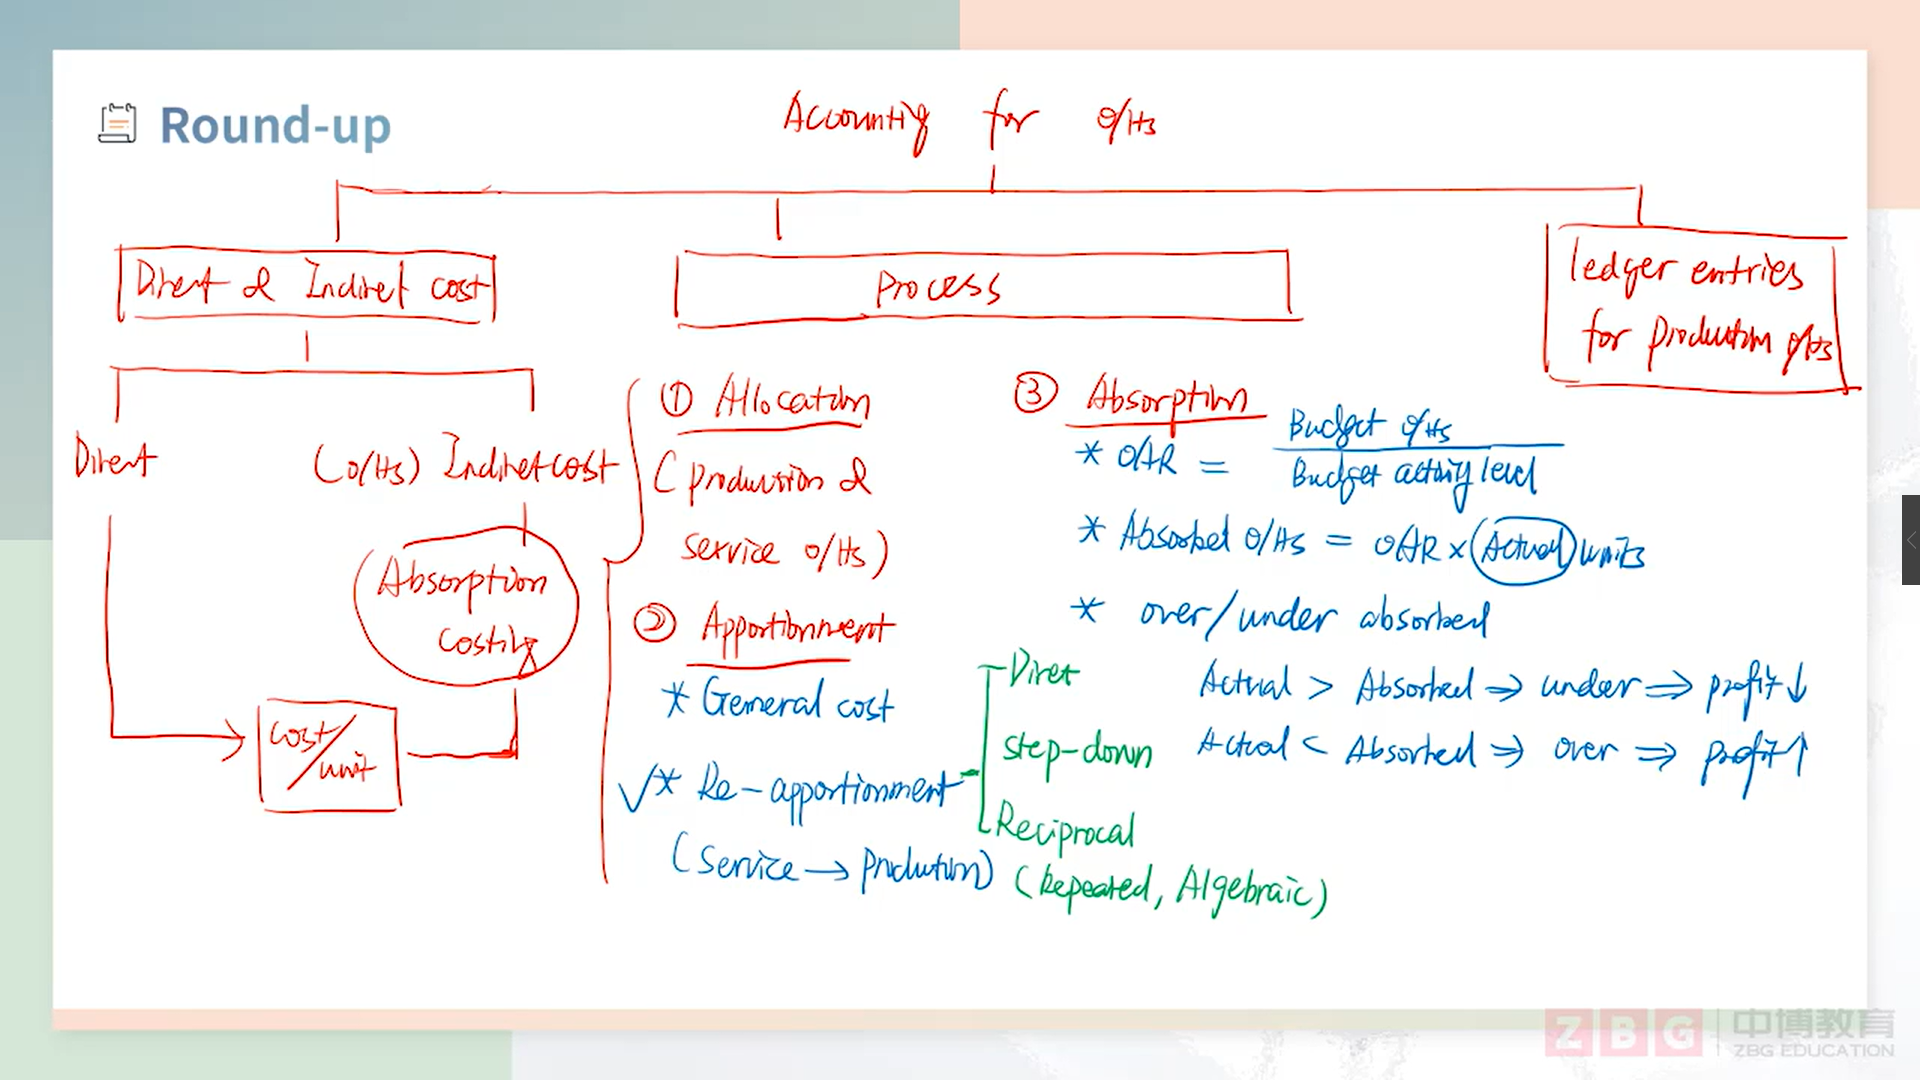 Round-up
Accounting for O/Hs
Direct & Indirect cost
Process
ledger entries
for production O/Hs
Direct
(O/Hs) Indirect cost
Absorption
costing
cost/unit
① Allocation
(production &
service O/Hs)
② Apportionment
* General cost
✓* Re-apportionment
(Service → production)
Direct
step-down
Reciprocal
(Repeated, Algebraic)
③ Absorption
* OAR = Budget O/Hs / Budget activity level
* Absorbed O/Hs = OAR × Actual units
* over/under absorbed
Actual > Absorbed ⇒ under ⇒ profit ↓
Actual < Absorbed ⇒ over ⇒ profit ↑
ZBG 中博教育
ZBG EDUCATION